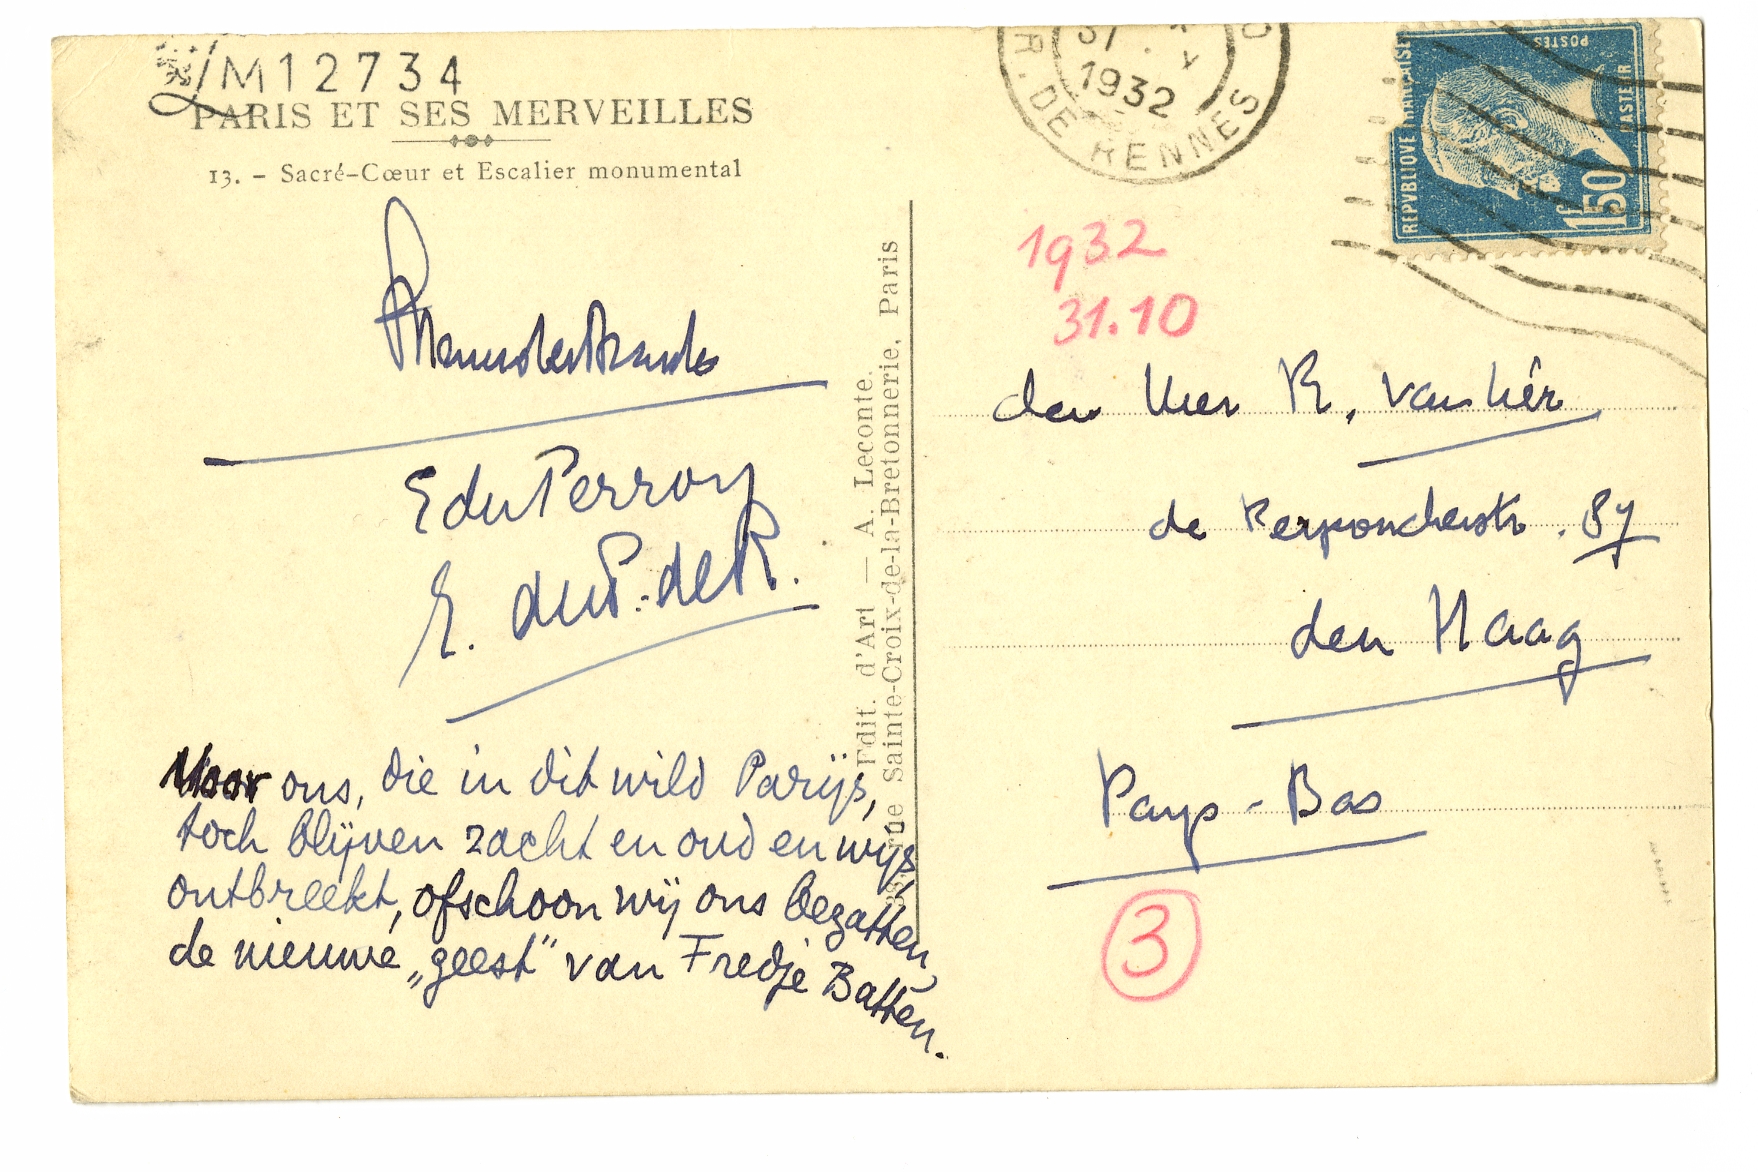 M12734
PARIS ET SES MERVEILLES
13. – Sacré-Cœur et Escalier monumental
EduPerron
E. duP. de R.
Voor ons, die in dit wild Parijs,
toch blijven zacht en oud en wijs,
ontbreekt, ofschoon wij ons begatten,
de nieuwe „geest" van Fredje Batten.
Edit. d'Art — A. Leconte.
rue Sainte-Croix-de-la-Bretonnerie, Paris
R. DE RENNES
31 . X
1932
REPVBLIQVE FRANÇAISE
POSTES
PASTEVR
1f50
1932
31.10
den Heer R. van Lier
de Perponcherstr. 87
den Haag
Pays-Bas
3